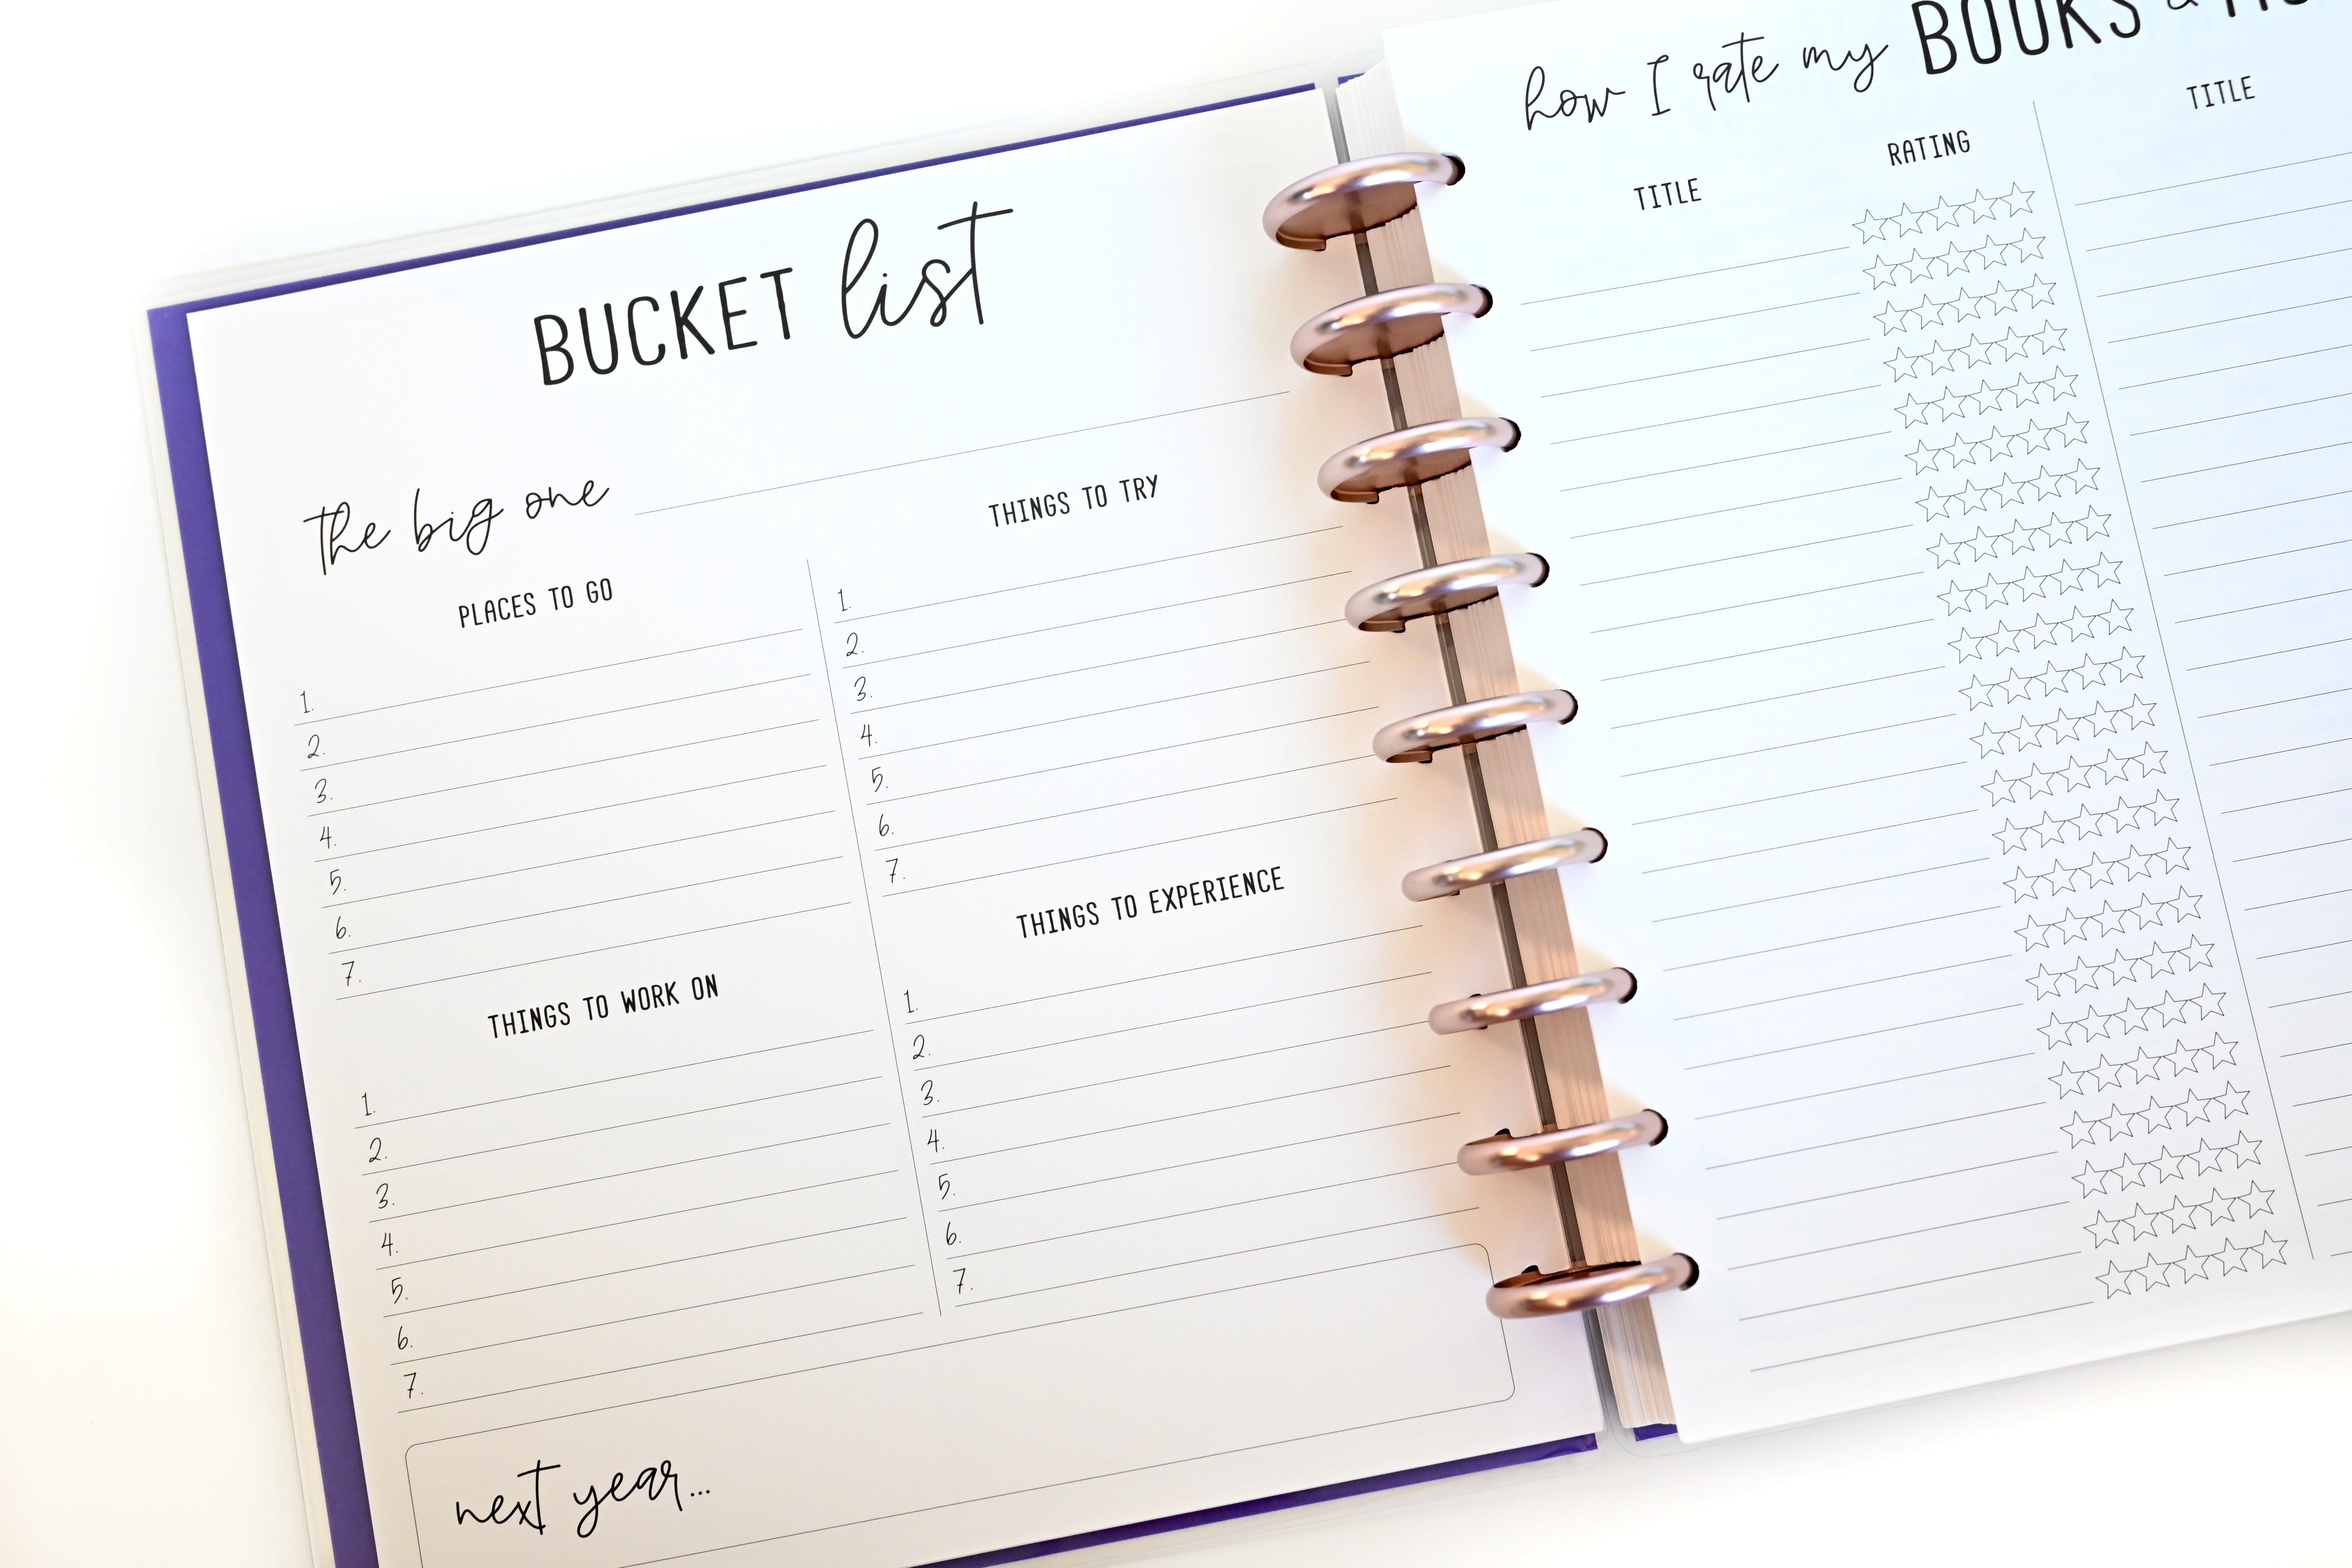 BUCKET list
the big one
PLACES TO GO
1.
2.
3.
4.
5.
6.
7.
THINGS TO WORK ON
1.
2.
3.
4.
5.
6.
7.
THINGS TO TRY
1.
2.
3.
4.
5.
6.
7.
THINGS TO EXPERIENCE
1.
2.
3.
4.
5.
6.
7.
next year...
how I rate my BOOKS &
TITLE
RATING
TITLE